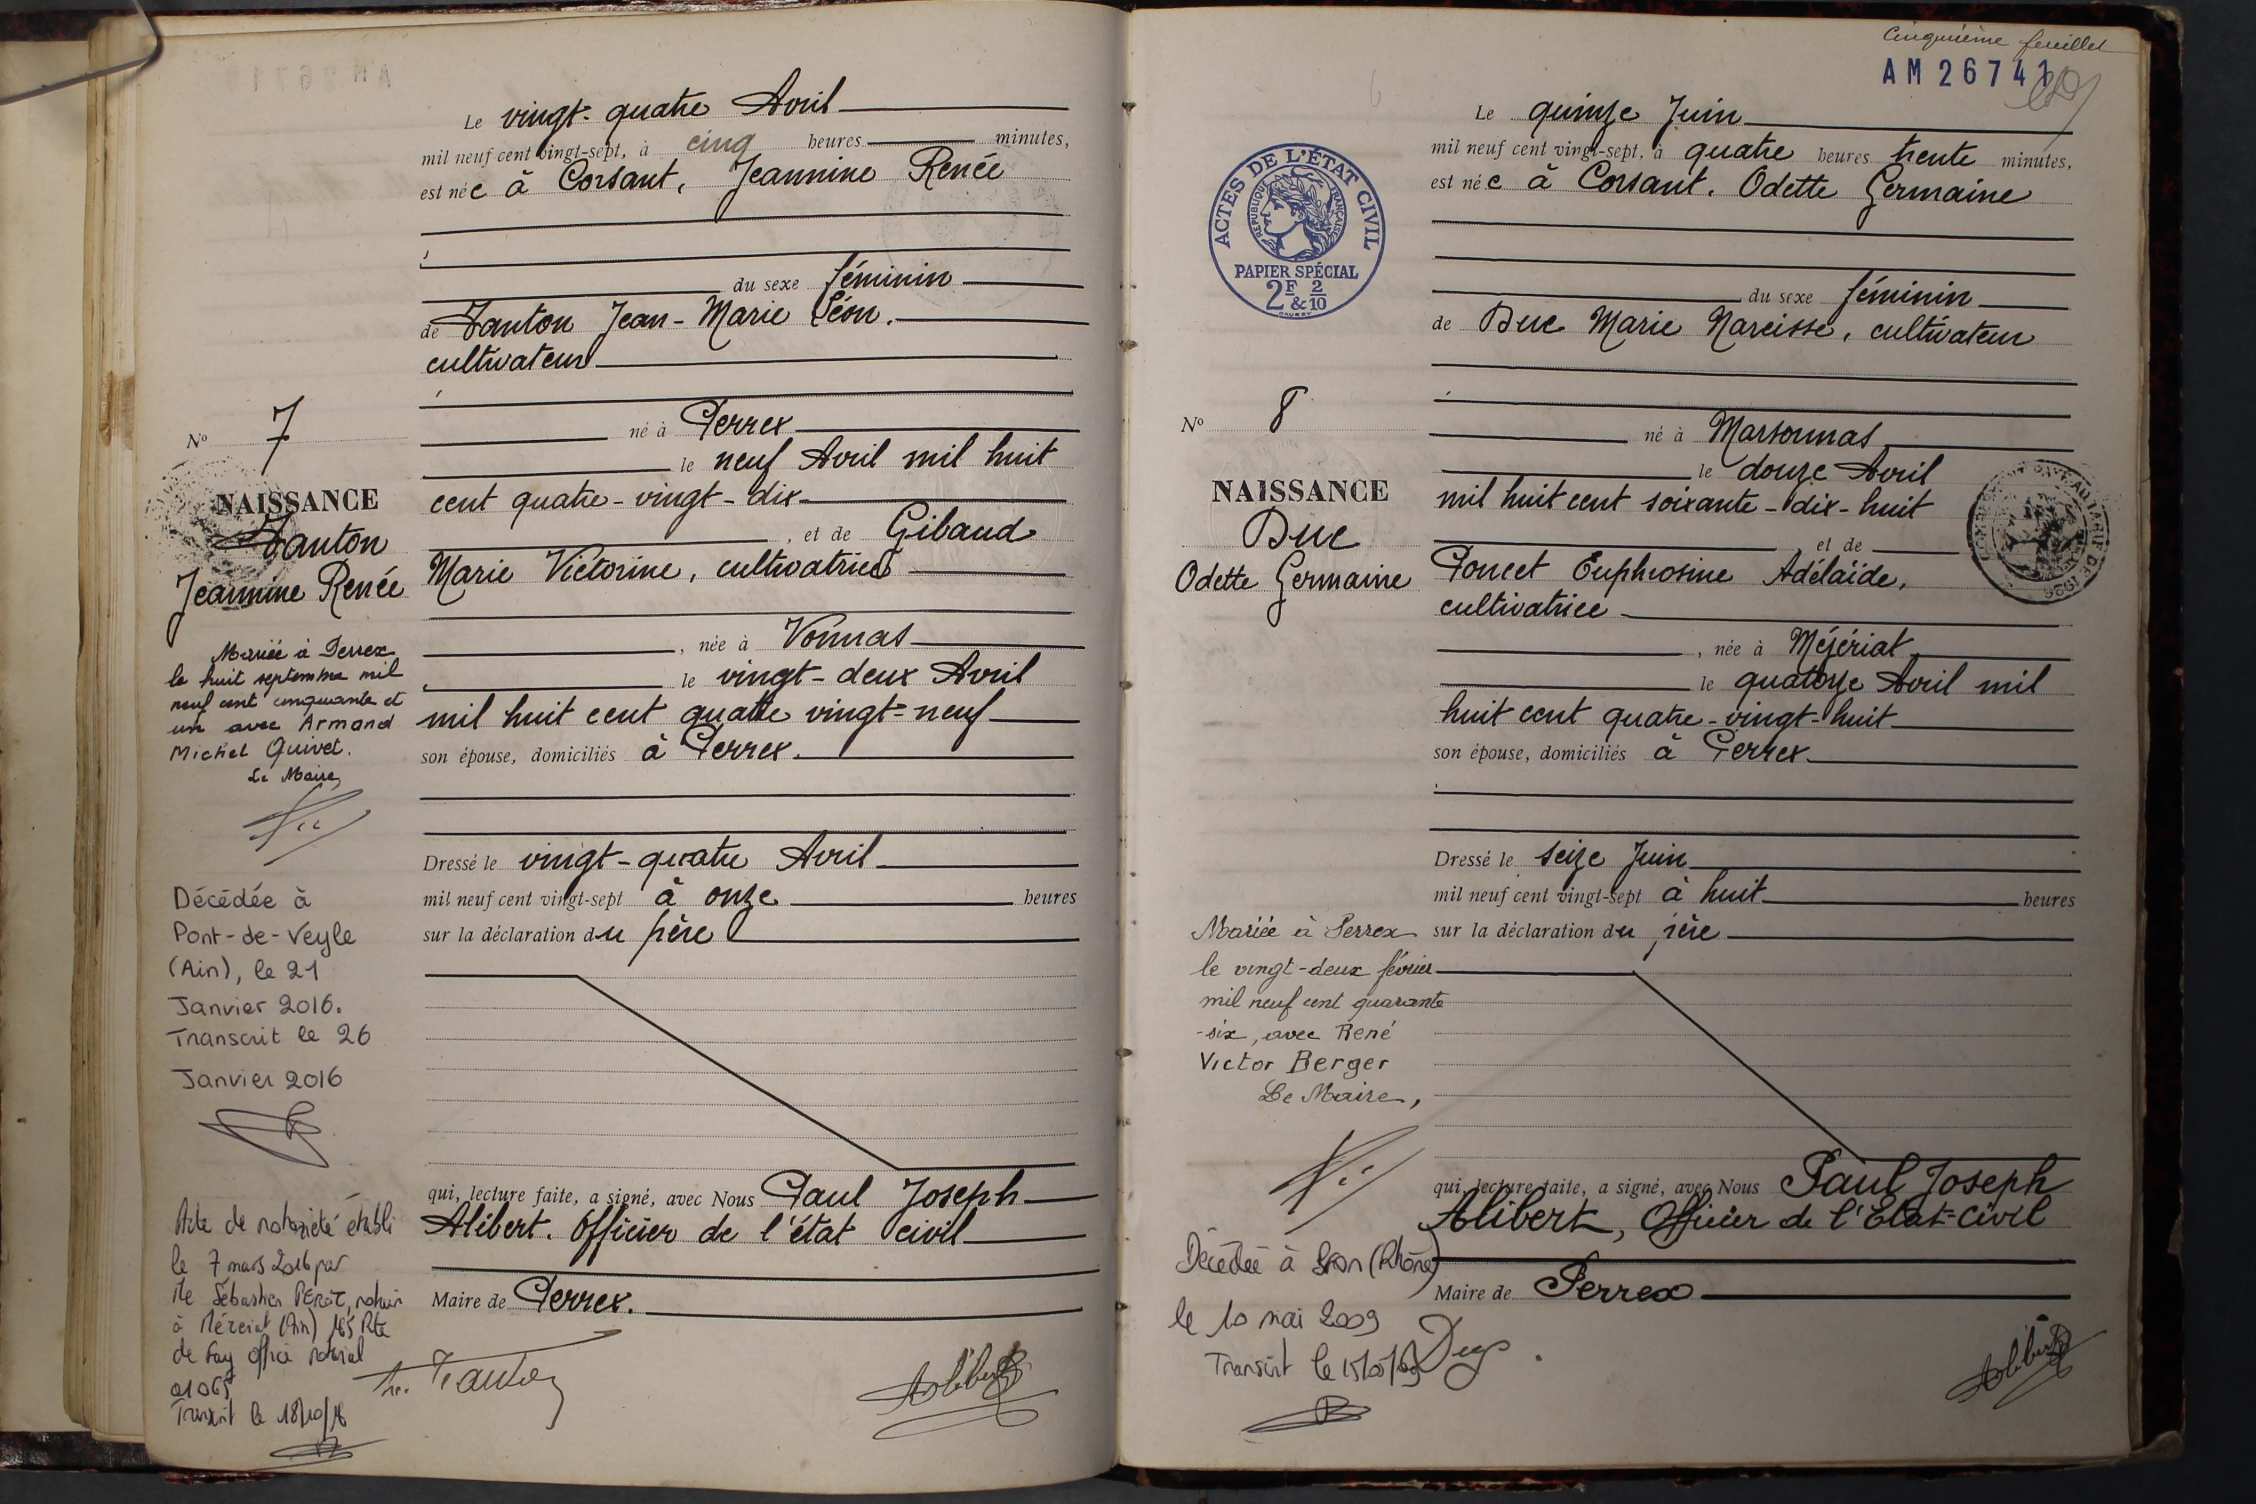 Le vingt-quatre Avril
mil neuf cent vingt-sept, à cinq heures minutes,
est née à Corsant, Jeannine Renée
du sexe féminin
de Tanton Jean-Marie Léon.
cultivateur
né à Perrex
le neuf Avril mil huit
cent quatre-vingt-dix
, et de Gibaud
Marie Victorine, cultivatrice
, née à Vonnas
le vingt-deux Avril
mil huit cent quatre vingt-neuf
son épouse, domiciliés à Perrex.
Dressé le vingt-quatre Avril
mil neuf cent vingt-sept à onze heures
sur la déclaration du père
qui, lecture faite, a signé, avec Nous Paul Joseph
Alibert. Officier de l'état civil
Maire de Perrex.
Tanton
Alibert
No 7
NAISSANCE
Tanton
Jeannine Renée
Mariée à Perrex
le huit septembre mil
neuf cent cinquante et
un avec Armand
Michel Guivet.
Le Maire,
Décédée à
Pont-de-Veyle
(Ain), le 21
Janvier 2016.
Transcrit le 26
Janvier 2016
Acte de notoriété établi
le 7 mars 2016 par
Me Sébastien notaire
à Mézériat (Ain) Rte
de Fay office notarial
01065
Transcrit le 18/10/16
Cinquième feuillet
AM 26741
Le quinze Juin
mil neuf cent vingt-sept, à quatre heures trente minutes,
est née à Corsant. Odette Germaine
du sexe féminin
de Duc Marie Narcisse, cultivateur
né à Marsonnas
le douze Avril
mil huit cent soixante-dix-huit
et de
Poncet Euphrosine Adélaïde,
cultivatrice
, née à Méjériat
le quatorze Avril mil
huit cent quatre-vingt-huit
son épouse, domiciliés à Perrex.
Dressé le seize Juin
mil neuf cent vingt-sept à huit heures
sur la déclaration du père
qui, lecture faite, a signé, avec Nous Paul Joseph
Alibert, Officier de l'Etat-Civil
Maire de Perrex
Duc
Alibert
ACTES DE L'ÉTAT CIVIL
RÉPUBLIQUE FRANÇAISE
PAPIER SPÉCIAL
2F & 2/10
No 8
NAISSANCE
Duc
Odette Germaine
Mariée à Perrex
le vingt-deux février
mil neuf cent quarante
-six, avec René
Victor Berger
Le Maire,
Décédée à Bron (Rhône)
le 10 mai 2009
Transcrit le 15/05/09